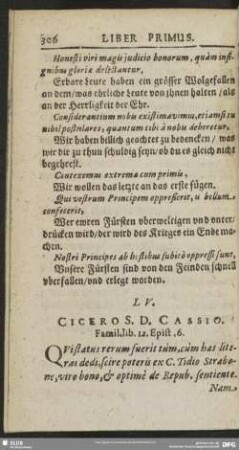 306 LIBER PRIMUS.
Honesti viri magis judicio bonorum, quàm insi-
gnibus gloriæ delectantur.
Erbare Leute haben ein grösser Wolgefallen
an dem/was ehrliche Leute von jhnen halten/als
an der Herrligkeit der Ehr.
Considerantium nobis existimavimus, etiamsi tu
nihil postulares, quantum tibi à nobis deberetur.
Wir haben billich geachtet zu bedencken/ was
wir dir zu thun schuldig seyn/ob du es gleich nicht
begehrest.
Contexemus extrema cum primis.
Wir wollen das letzte an das erste fügen.
Qui vestrum Principem oppresserit, is bellum
confecerit.
Wer ewren Fürsten vberweltigen vnd vnter-
drücken wird/der wird des Krieges ein Ende ma-
chen.
Nostri Principes ab hostibus subitò oppressi sunt.
Vnsere Fürsten sind von den Feinden schnell
vberfallen/vnd erlegt worden.
LV.
CICERO S. D. CASSIO.
Famil. lib. 12. Epist. 6.
QVi status rerum fuerit tùm, cùm has lite-
ras dedi, scire poteris ex C. Tidio Strabo-
ne, viro bono, & optimè de Repub. sentiente.
Nam